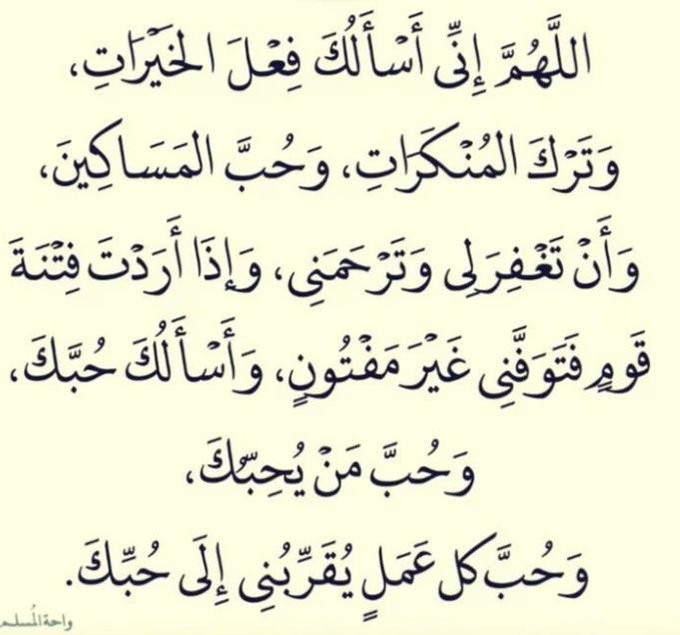 اللَّهُمَّ إِنِّي أَسْأَلُكَ فِعْلَ الخَيْرَاتِ،
وَتَرْكَ المُنْكَرَاتِ، وَحُبَّ المَسَاكِينَ،
وَأَنْ تَغْفِرَلِي وَتَرْحَمَنِي، وَإِذَا أَرَدْتَ فِتْنَةَ
قَومٍ فَتَوَفَّنِي غَيْرَ مَفْتُونٍ، وَأَسْأَلُكَ حُبَّكَ،
وَحُبَّ مَنْ يُحِبُّكَ،
وَحُبَّ كل عَمَلٍ يُقَرِّبُنِي إِلَى حُبِّكَ.
واحة المُسلم